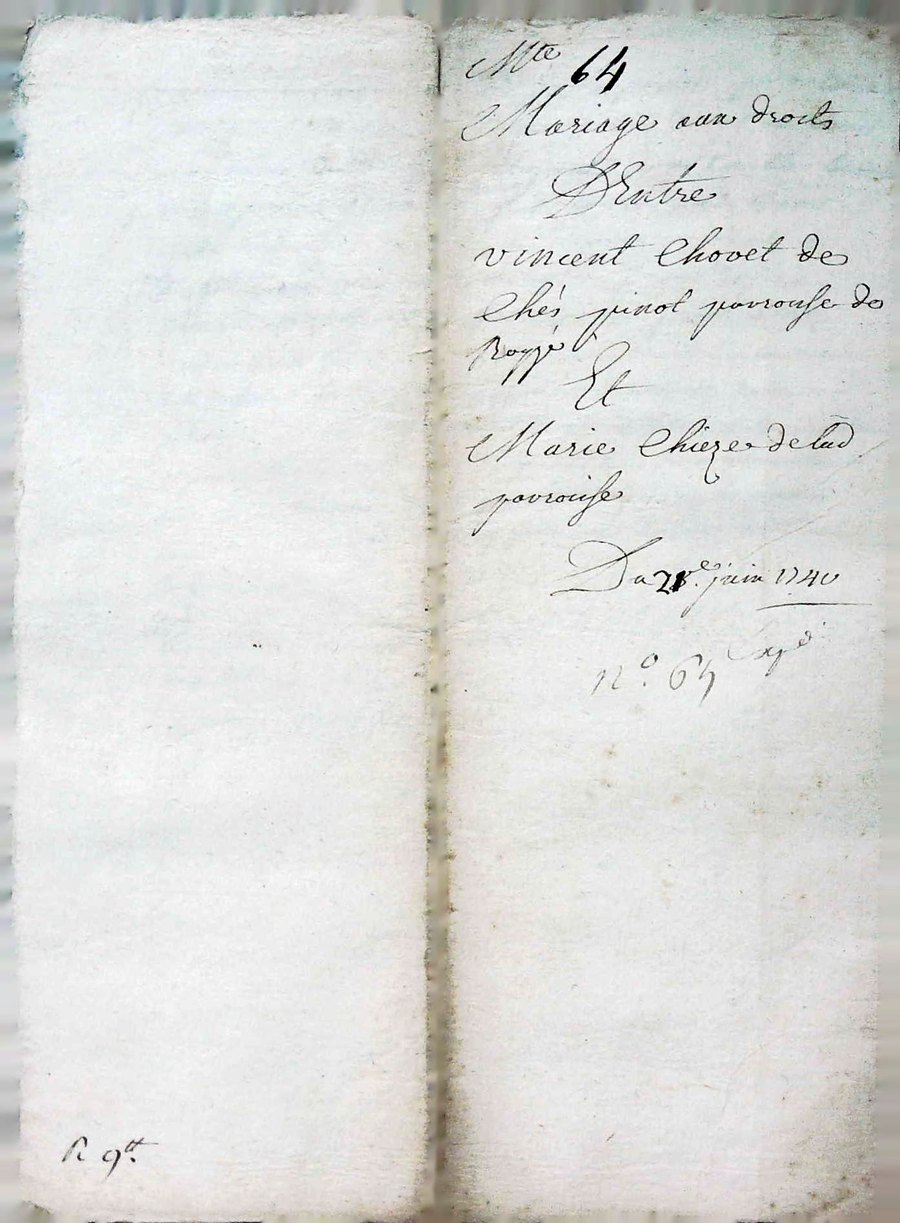 Mte 64
Mariage aux droits
D'Entre
vincent Chovet de
Chés pinot parroisse de
Et
Marie Chieze de lad
parroisse
Du juin 1740
n.o 64 Expé
R 9tt.